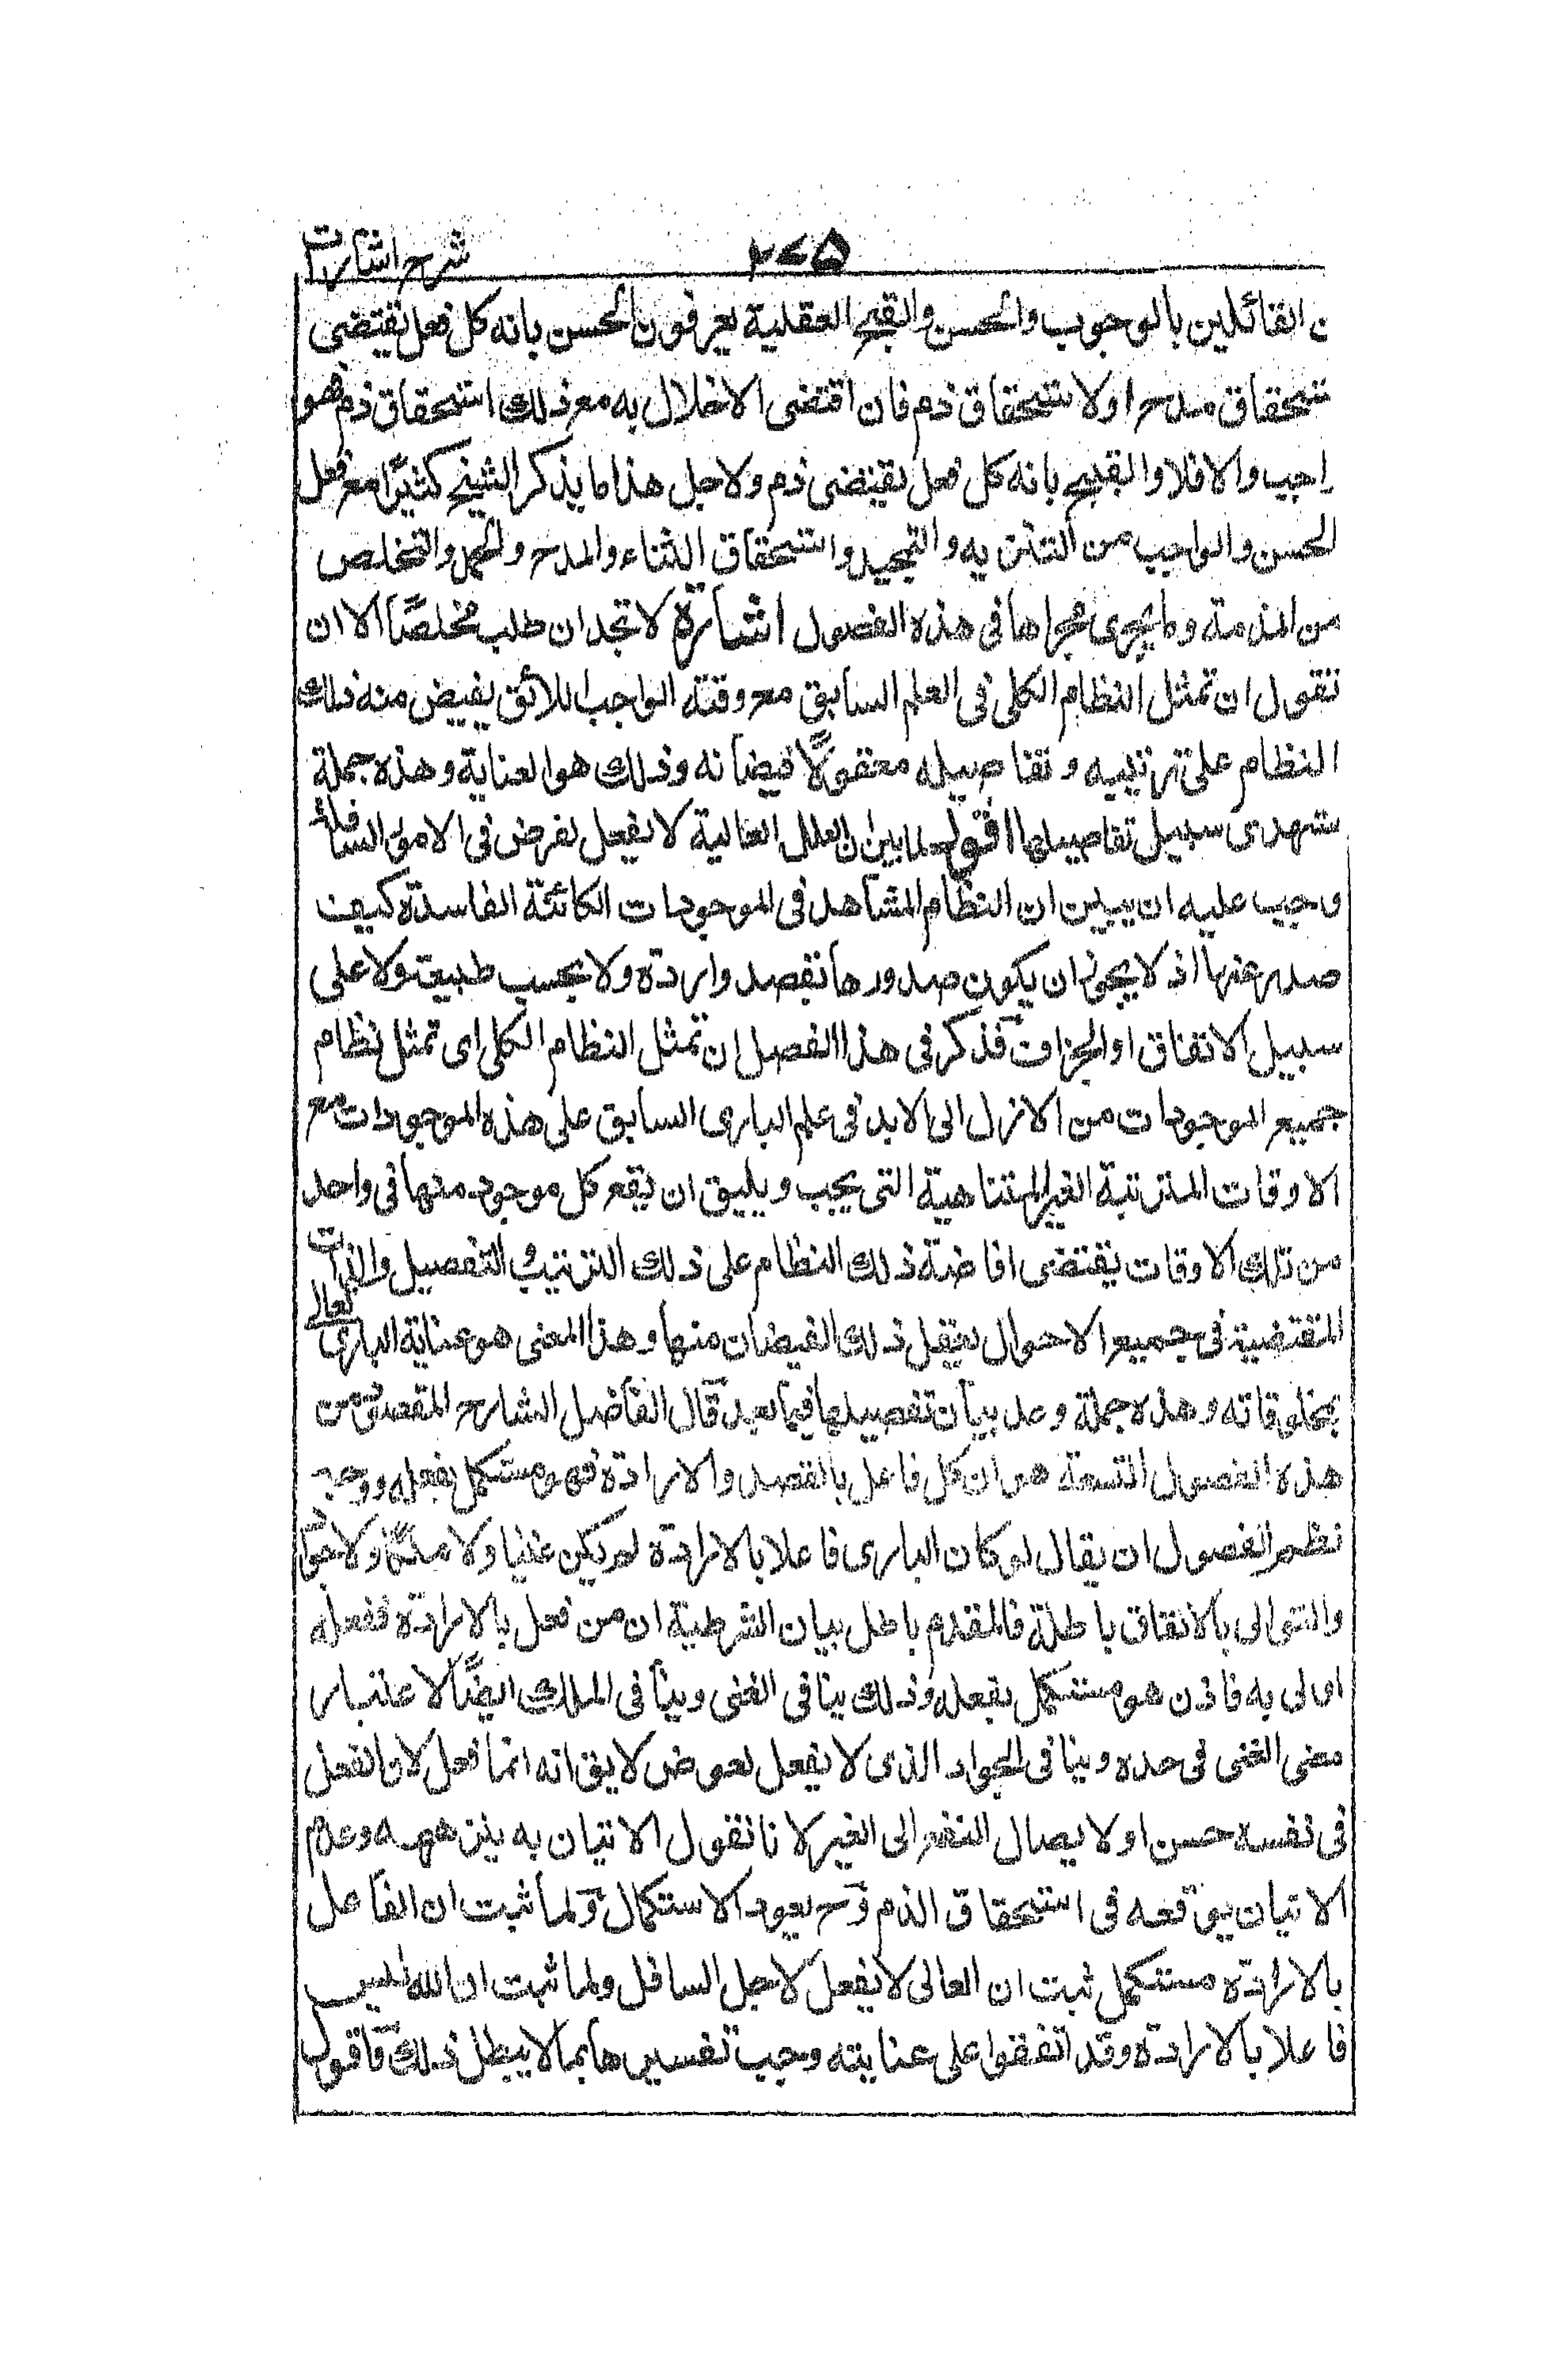 شرح اشارات
٢٧٥
ن القائلين بالوجوب والحسن والقبح العقلية يعرفون الحسن بانه كل فعل يقتضى
ستحقاق مدح او لا ستحقاق ذم فان اقتضى الاخلال به مع ذلك استحقاق ذم فهو
واجب والا فلا والقبيح بانه كل فعل يقتضى ذم ولاجل هذا ما يذكر الشيخ كثيرًا مع فعل
الحسن والواجب من التنزيه والتمجيد واستحقاق الثناء والمدح والحمد والتخلص
من المذمة وما يجرى مجراها فى هذه الفصول اشارة لا تجد ان طلب مخلصًا الا ان
تقول ان تمثل النظام الكلى فى العلم السابق مع وقته الواجب اللائق يفيض منه ذلك
النظام على ترتيبه وتفاصيله معقولًا فيضانه وذلك هو العناية وهذه جملة
ستهدى سبيل تفاصيلها اقول لما بين ان العلل العالية لا يفعل لغرض فى الامور السافلة
وجب عليه ان يبين ان النظام المشاهد فى الموجودات الكائنة الفاسدة كيف
صدر عنها اذ لا يجوز ان يكون صدورها بقصد وارادة ولا بحسب طبيعة ولا على
سبيل الاتفاق او الجزاف فذكر فى هذا الفصل ان تمثل النظام الكلى اى تمثل نظام
جميع الموجودات من الازل الى الابد فى علم البارى السابق على هذه الموجودات مع
الاوقات المترتبة الغير المتناهية التى يجب ويليق ان يقع كل موجود منها فى واحد
من تلك الاوقات يقتضى افاضة ذلك النظام على ذلك الترتيب والتفصيل والذات
المقتضية فى جميع الاحوال يتعقل ذلك الفيضان منها وهذا المعنى هو عناية البارى تعالى
بمخلوقاته وهذه جملة وعد بيان تفصيلها فيما بعد قال الفاضل الشارح المقصود من
هذه الفصول التسعة هو ان كل فاعل بالقصد والارادة فهو مستكمل بفعله ووجه
نظم الفصول ان يقال لو كان البارى فاعلا بالارادة لم يكن غنيا ولا ملكًا ولا جوادا
والتوالى بالاتفاق باطلة فالمقدم باطل بيان الشرطية ان من فعل بالارادة ففعله
اولى به فاذن هو مستكمل بفعله وذلك ينافى الغنى وينافى الملك ايضًا لاعتبار
معنى الغنى فى حده وينافى الجواد الذى لا يفعل لعوض لا يق انه انما فعل لان الفعل
فى نفسه حسن او لايصال النفع الى الغير لانا نقول الاتيان به ينزهه وعدم
الاتيان يوقعه فى استحقاق الذم وح يعود الاستكمال ولما ثبت ان الفاعل
بالارادة مستكمل ثبت ان العالى لا يفعل لاجل السافل ولما ثبت ان الله ليس
فاعلا بالارادة وقد اتفقوا على عنايته وجب تفسيرها بما لا يبطل ذلك فاقول